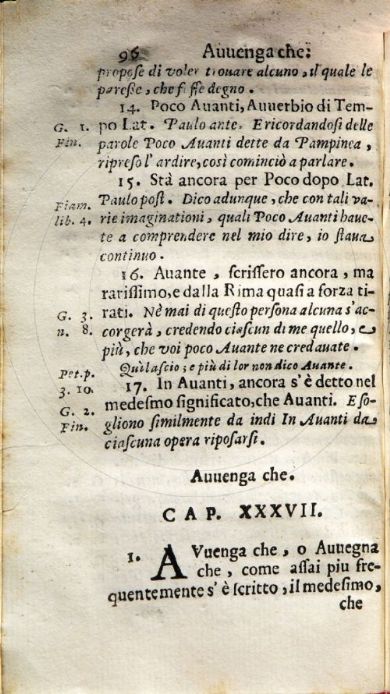 96 Avuenga che:
propose di voler trouare alcuno, il quale le
paresse, che fosse degno.
14. Poco Auanti, Auuerbio di Tem-
G. 1. po Lat. Paulo ante. E ricordandosi delle
Fin. parole Poco Auanti dette da Pampinea,
ripreso l'ardire, così cominciò a parlare.
15. Stà ancora per Poco dopo Lat.
Fiam. Paulo post. Dico adunque, che con tali va-
lib. 4. rie imaginationi, quali Poco Auanti haue-
te a comprendere nel mio dire, io staua
continuo.
16. Auante, scrissero ancora, ma
rarissimo, e dalla Rima quasi a forza ti-
G. 3. rati. Nè mai di questo persona alcuna s'ac-
n. 8. corgerà, credendo ciascun di me quello, e
più, che voi poco Auante ne credauate.
Pet. p. Qui lascio; e più di lor non dico Auante.
3. 10. 17. In Auanti, ancora s'è detto nel
G. 2. medesmo significato, che Auanti. E so-
Fin. gliono similmente da indi In Auanti da
ciascuna opera riposarsi.
Auuenga che.
CAP. XXXVII.
1. AVuenga che, o Auuegna
che, come assai piu fre-
quentemente s'è scritto, il medesimo,
che